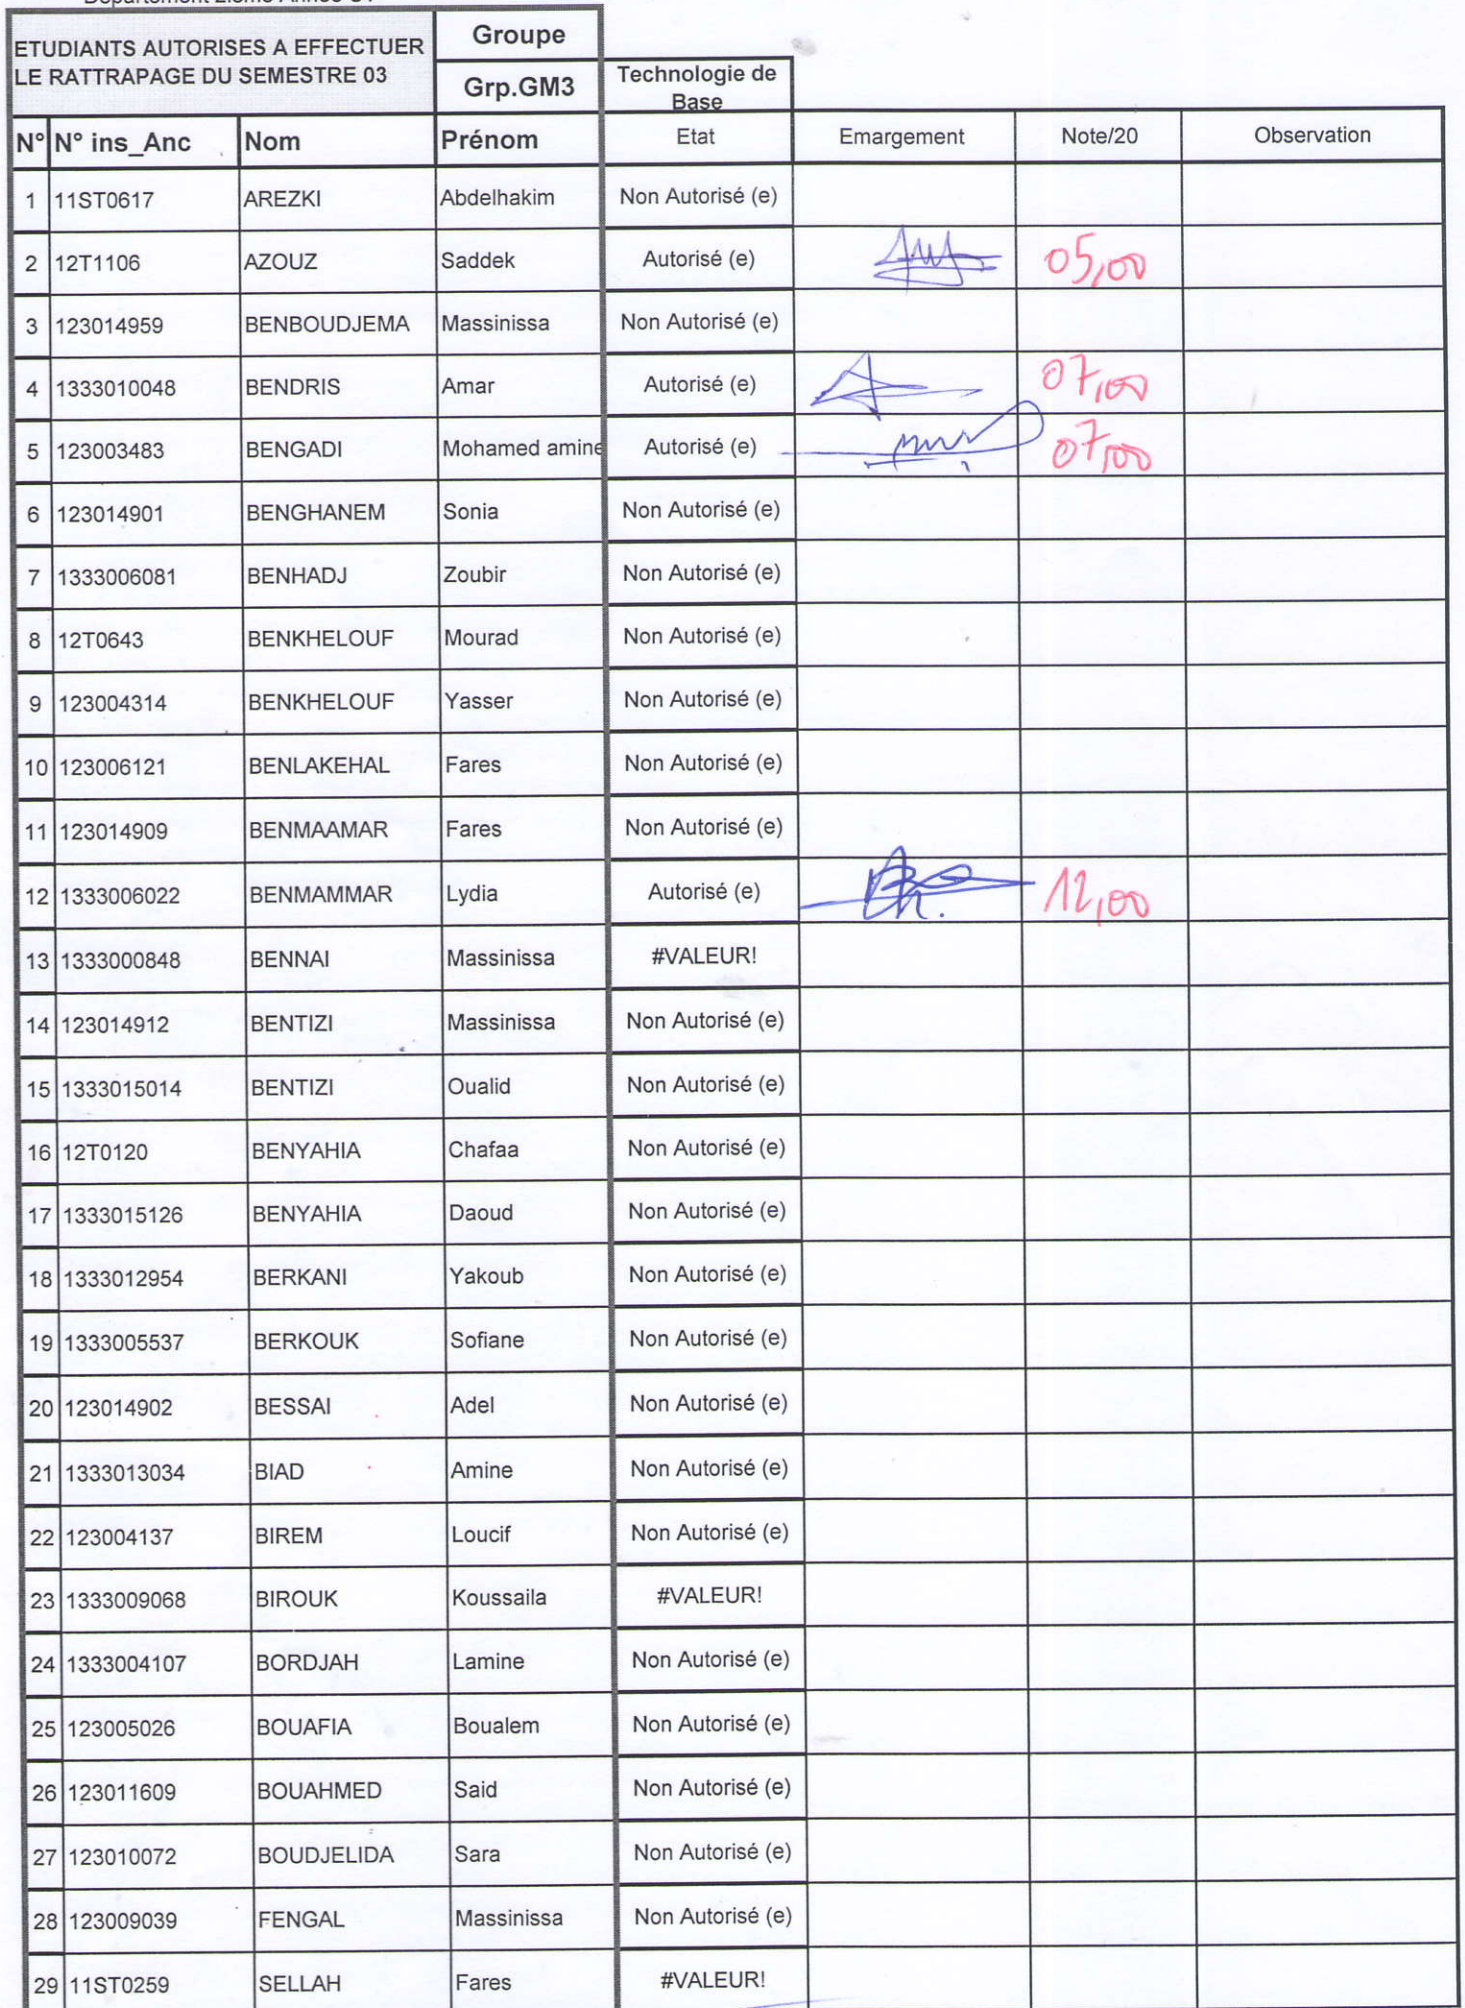 ETUDIANTS AUTORISES A EFFECTUER LE RATTRAPAGE DU SEMESTRE 03
Groupe
Grp.GM3
Technologie de Base
N° N° ins_Anc Nom Prénom Etat Emargement Note/20 Observation
1 11ST0617 AREZKI Abdelhakim Non Autorisé (e)
2 12T1106 AZOUZ Saddek Autorisé (e) 05,00
3 123014959 BENBOUDJEMA Massinissa Non Autorisé (e)
4 1333010048 BENDRIS Amar Autorisé (e) 07,00
5 123003483 BENGADI Mohamed amine Autorisé (e) 07,00
6 123014901 BENGHANEM Sonia Non Autorisé (e)
7 1333006081 BENHADJ Zoubir Non Autorisé (e)
8 12T0643 BENKHELOUF Mourad Non Autorisé (e)
9 123004314 BENKHELOUF Yasser Non Autorisé (e)
10 123006121 BENLAKEHAL Fares Non Autorisé (e)
11 123014909 BENMAAMAR Fares Non Autorisé (e)
12 1333006022 BENMAMMAR Lydia Autorisé (e) 12,00
13 1333000848 BENNAI Massinissa #VALEUR!
14 123014912 BENTIZI Massinissa Non Autorisé (e)
15 1333015014 BENTIZI Oualid Non Autorisé (e)
16 12T0120 BENYAHIA Chafaa Non Autorisé (e)
17 1333015126 BENYAHIA Daoud Non Autorisé (e)
18 1333012954 BERKANI Yakoub Non Autorisé (e)
19 1333005537 BERKOUK Sofiane Non Autorisé (e)
20 123014902 BESSAI Adel Non Autorisé (e)
21 1333013034 BIAD Amine Non Autorisé (e)
22 123004137 BIREM Loucif Non Autorisé (e)
23 1333009068 BIROUK Koussaila #VALEUR!
24 1333004107 BORDJAH Lamine Non Autorisé (e)
25 123005026 BOUAFIA Boualem Non Autorisé (e)
26 123011609 BOUAHMED Said Non Autorisé (e)
27 123010072 BOUDJELIDA Sara Non Autorisé (e)
28 123009039 FENGAL Massinissa Non Autorisé (e)
29 11ST0259 SELLAH Fares #VALEUR!